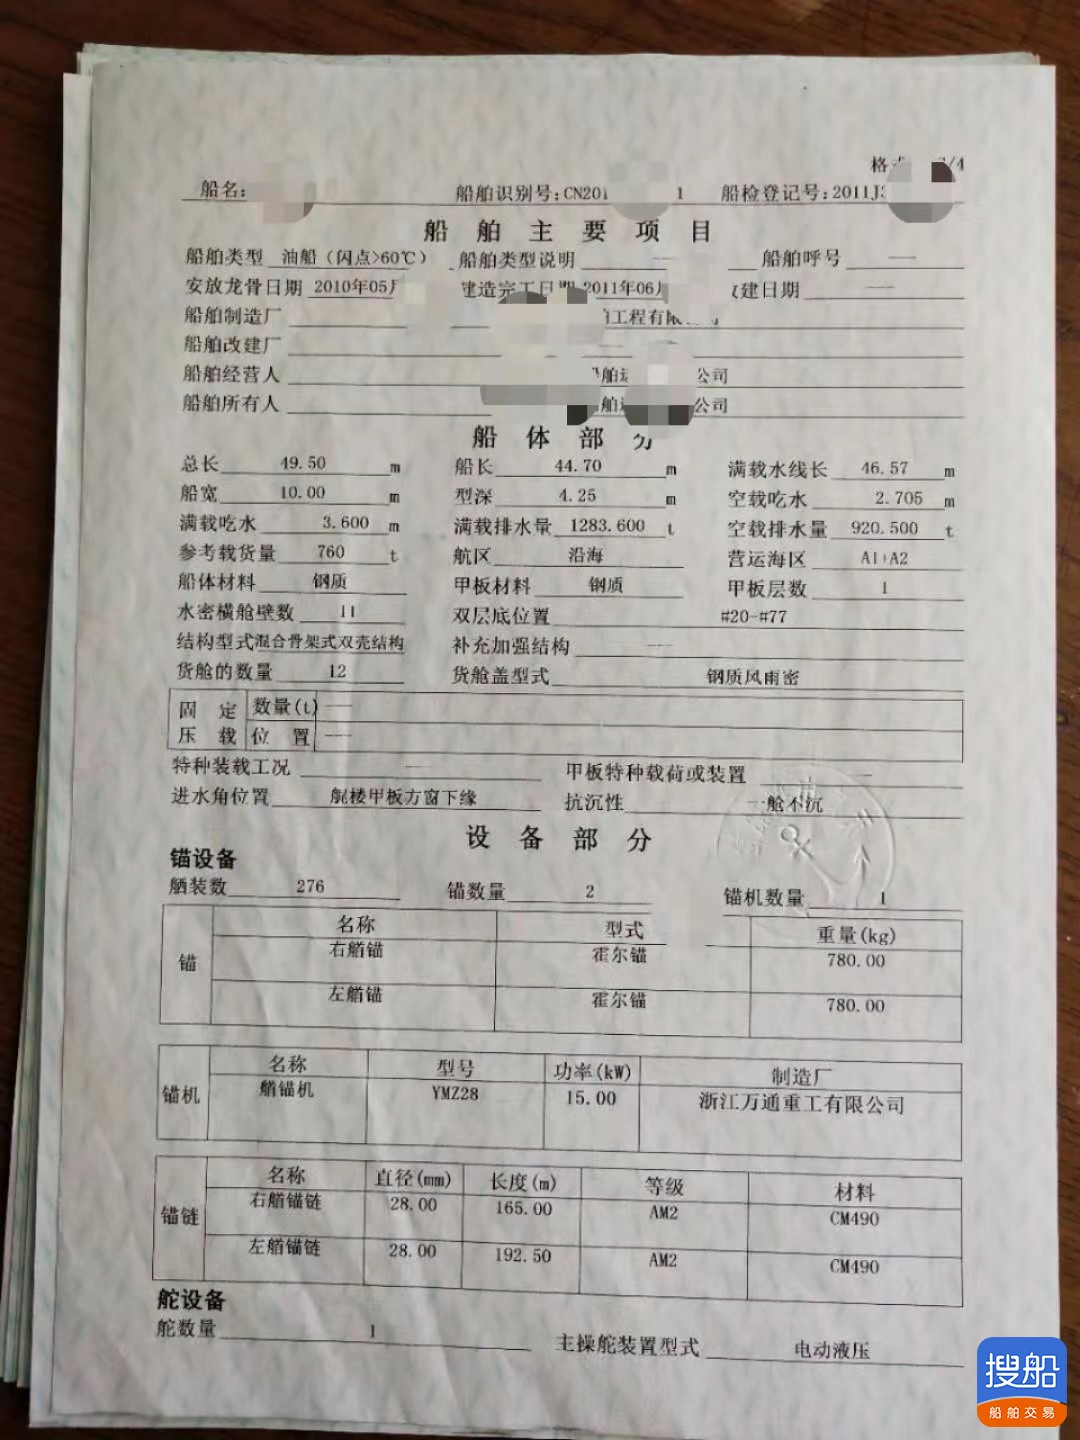 格式 3/4
船名: 船舶识别号:CN201 1 船检登记号:2011J
船舶主要项目
船舶类型 油船（闪点>60℃） 船舶类型说明 — 船舶呼号 —
安放龙骨日期 2010年05月 建造完工日期 2011年06月 改建日期 —
船舶制造厂 工程有限公司
船舶改建厂 —
船舶经营人 船舶运 公司
船舶所有人 船舶运 公司
船体部分
总长 49.50 m 船长 44.70 m 满载水线长 46.57 m
船宽 10.00 m 型深 4.25 m 空载吃水 2.705 m
满载吃水 3.600 m 满载排水量 1283.600 t 空载排水量 920.500 t
参考载货量 760 t 航区 沿海 营运海区 A1+A2
船体材料 钢质 甲板材料 钢质 甲板层数 1
水密横舱壁数 11 双层底位置 #20-#77
结构型式 混合骨架式双壳结构 补充加强结构 —
货舱的数量 12 货舱盖型式 钢质风雨密
固定压载 数量(t) —
位置 —
特种装载工况 — 甲板特种载荷或装置 —
进水角位置 艉楼甲板方窗下缘 抗沉性 一舱不沉
设备部分
锚设备
舾装数 276 锚数量 2 锚机数量 1
锚 名称 型式 重量(kg)
右艏锚 霍尔锚 780.00
左艏锚 霍尔锚 780.00
锚机 名称 型号 功率(kW) 制造厂
艏锚机 YMZ28 15.00 浙江万通重工有限公司
锚链 名称 直径(mm) 长度(m) 等级 材料
右艏锚链 28.00 165.00 AM2 CM490
左艏锚链 28.00 192.50 AM2 CM490
舵设备
舵数量 1 主操舵装置型式 电动液压
搜船
船舶交易